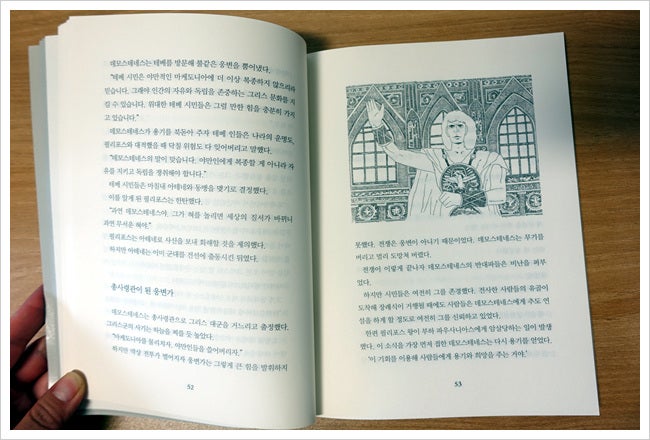 데모스테네스는 테베를 방문해 불같은 웅변을 뿜어냈다.
"테베 시민은 야만적인 마케도니아에 더 이상 복종하지 않으리라
믿습니다. 그래야 인간의 자유와 독립을 존중하는 그리스 문화를 지
킬 수 있습니다. 위대한 테베 시민들은 그럴 만한 힘을 충분히 가지
고 있습니다."
데모스테네스가 용기를 북돋아 주자 테베 인들은 나라의 운명도,
필리포스와 대적했을 때 닥칠 위험도 다 잊어버리고 말했다.
"데모스테네스의 말이 맞습니다. 야만인에게 복종할 게 아니라 자
유를 지키고 독립을 쟁취해야 합니다."
테베 시민들은 마침내 아테네와 동맹을 맺기로 결정했다.
이를 알게 된 필리포스는 한탄했다.
"과연 데모스테네스야. 그가 혀를 놀리면 세상의 질서가 바뀌니
과연 무서운 혀야."
필리포스는 아테네로 사신을 보내 화해할 것을 제의했다.
하지만 아테네는 이미 군대를 전선에 출동시킨 뒤였다.
총사령관이 된 웅변가
데모스테네스는 총사령관으로 그리스 대군을 거느리고 출정했다.
그리스군의 사기는 하늘을 찌를 듯 높았다.
"마케도니아를 물리치자. 야만인들을 쓸어버리자."
하지만 막상 전투가 벌어지자 웅변가는 그렇게 큰 힘을 발휘하지
52
못했다. 전쟁은 웅변이 아니기 때문이었다. 데모스테네스는 무기를
버리고 멀리 도망쳐 버렸다.
전쟁이 이렇게 끝나자 데모스테네스의 반대파들은 비난을 퍼부
었다.
하지만 시민들은 여전히 그를 존경했다. 전사한 사람들의 유골이
도착해 장례식이 거행될 때에도 사람들은 데모스테네스에게 추도 연
설을 하게 할 정도로 여전히 그를 신뢰하고 있었다.
한편 필리포스 왕이 부하 파우사니아스에게 암살당하는 일이 발생
했다. 이 소식을 가장 먼저 접한 데모스테네스는 다시 용기를 얻었다.
'이 기회를 이용해 사람들에게 용기와 희망을 주는 거야.'
53